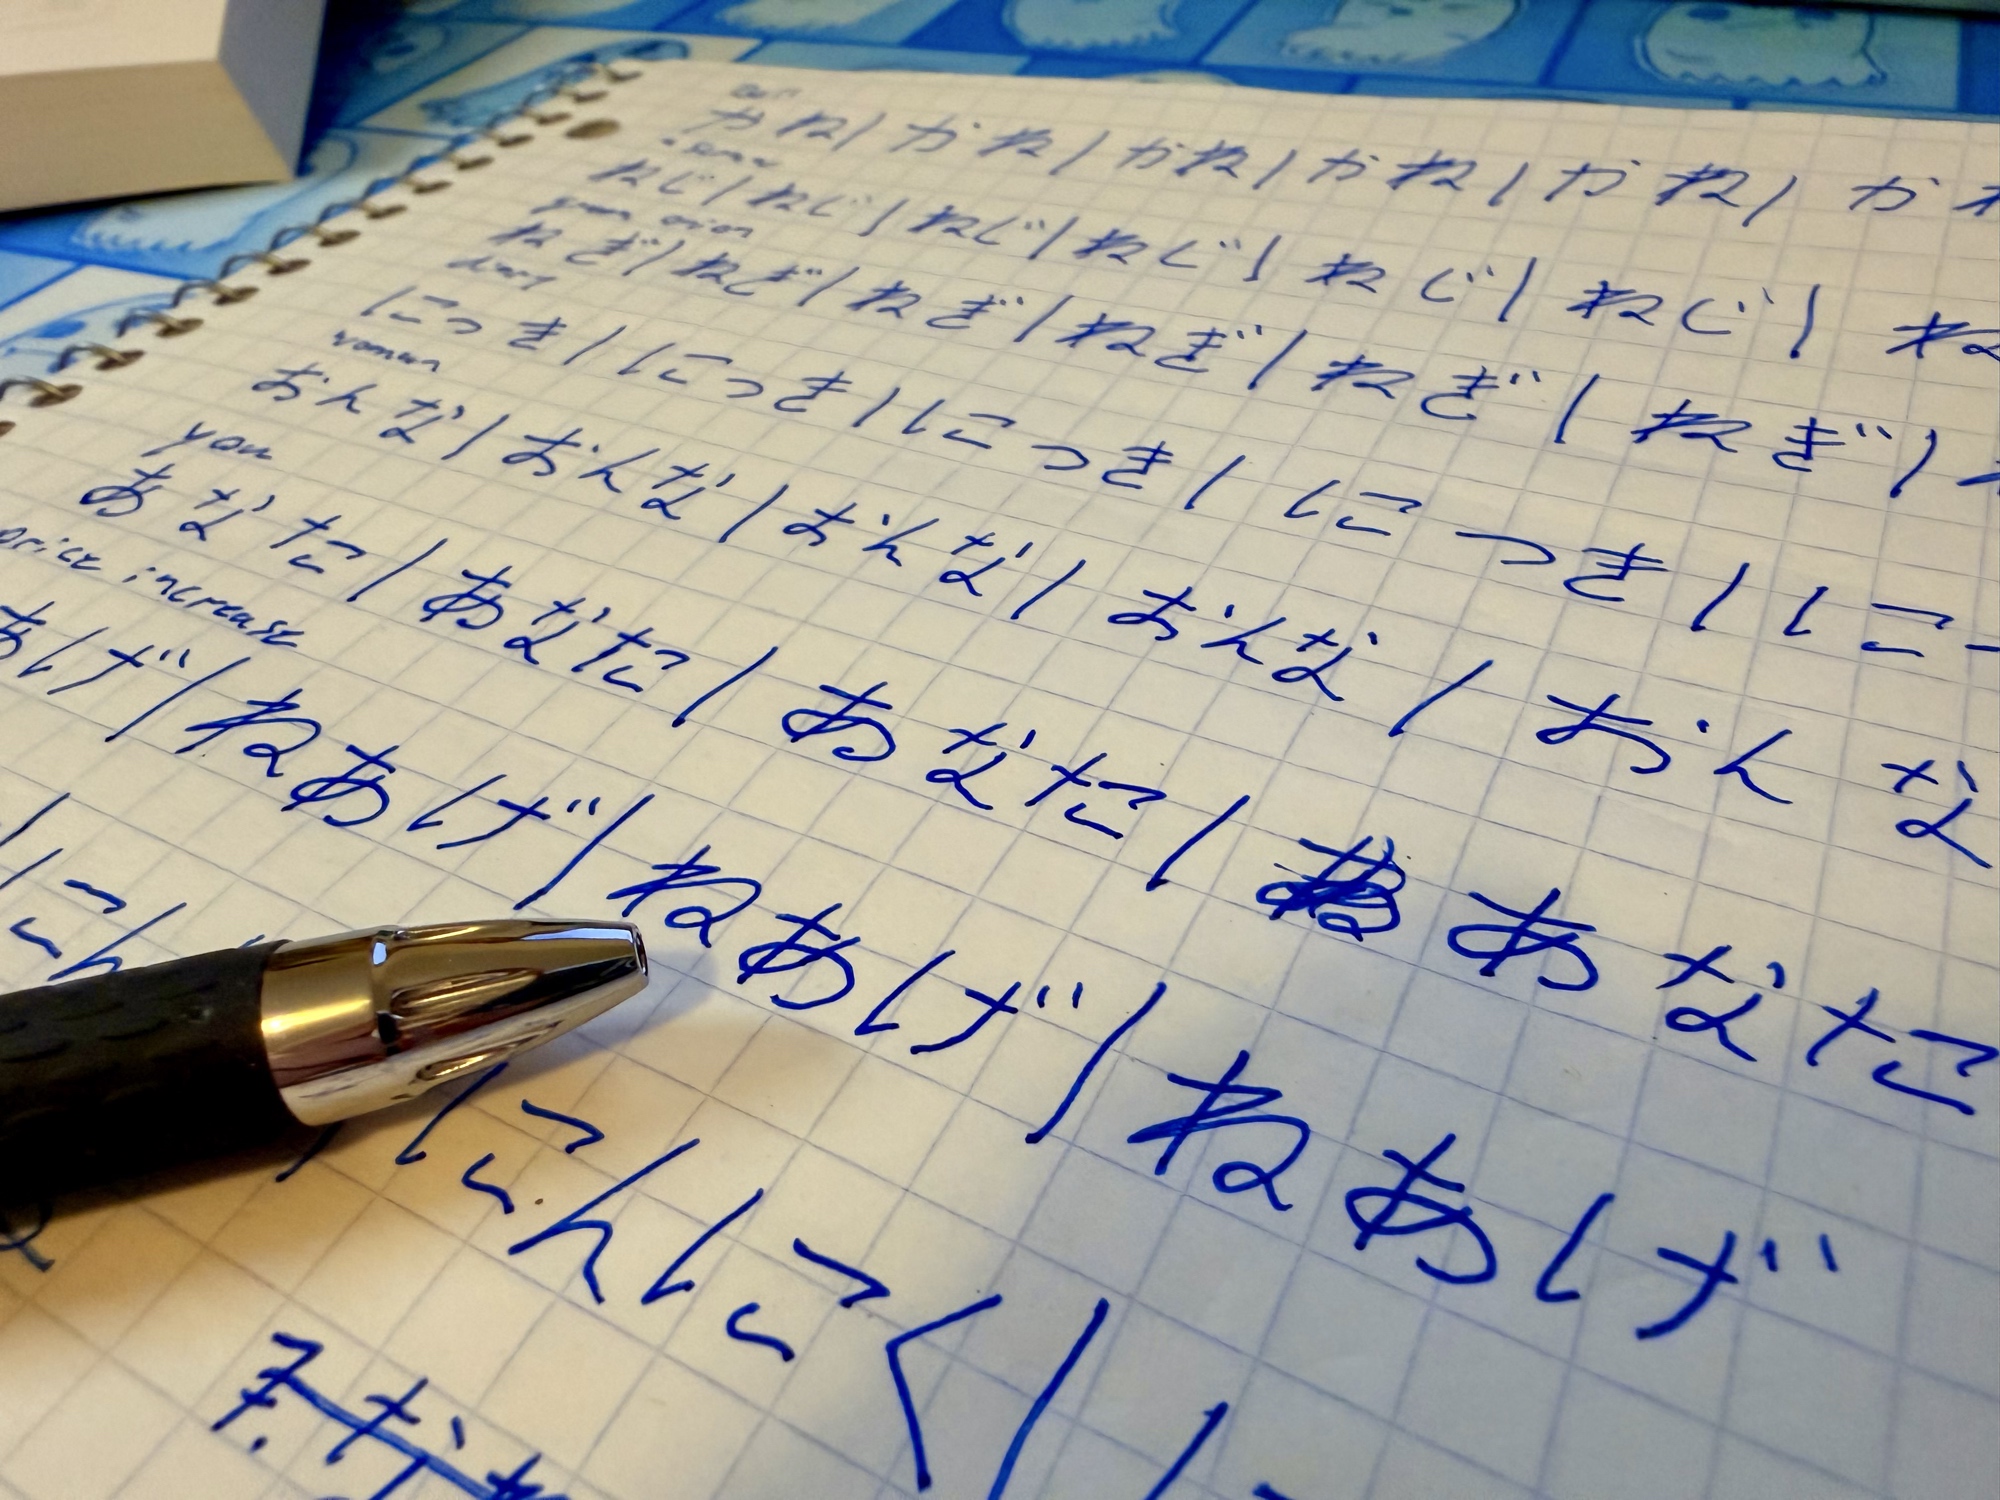 かね/かね/かね/かね/かね/か
ねじ/ねじ/ねじ/ねじ/ねじ/ねじ/ね
green onion
ねぎ/ねぎ/ねぎ/ねぎ/ねぎ/ねぎ/
diary
にっき/にっき/にっき/にっき/に
woman
おんな/おんな/おんな/おんな/おんな
you
あなた/あなた/あなた/あなた
price increase
あげ/ねあげ/ねあげ/ねあげ
にんにく/